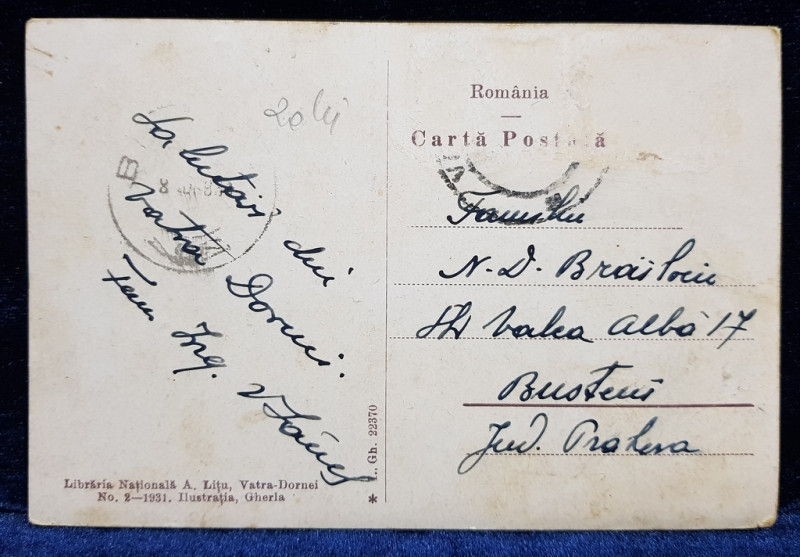 20 lei
Salutări din
Vatra Dornei.
Fam. Ing.
Librăria Națională A. Lițu, Vatra-Dornei
No. 2—1931. Ilustrația, Gherla
Gh. 22370
*
România
Cartă Poștală
Familiei
N. D. Brăiloiu
Valea Albă 17
Busteni
Jud. Prahova